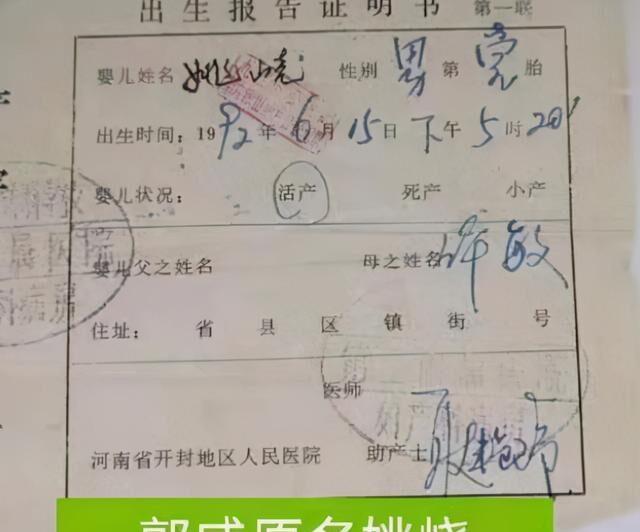 出生报告证明书 第一联
婴儿姓名 姚 性别 男 第 壹 胎
出生时间：1992年6月15日下午5时20'
婴儿状况： 活产 死产 小产
婴儿父之姓名 母之姓名 许敏
住址： 省 县 区 镇 街 号
医师
河南省开封地区人民医院 助产士
郭威原名姚烧